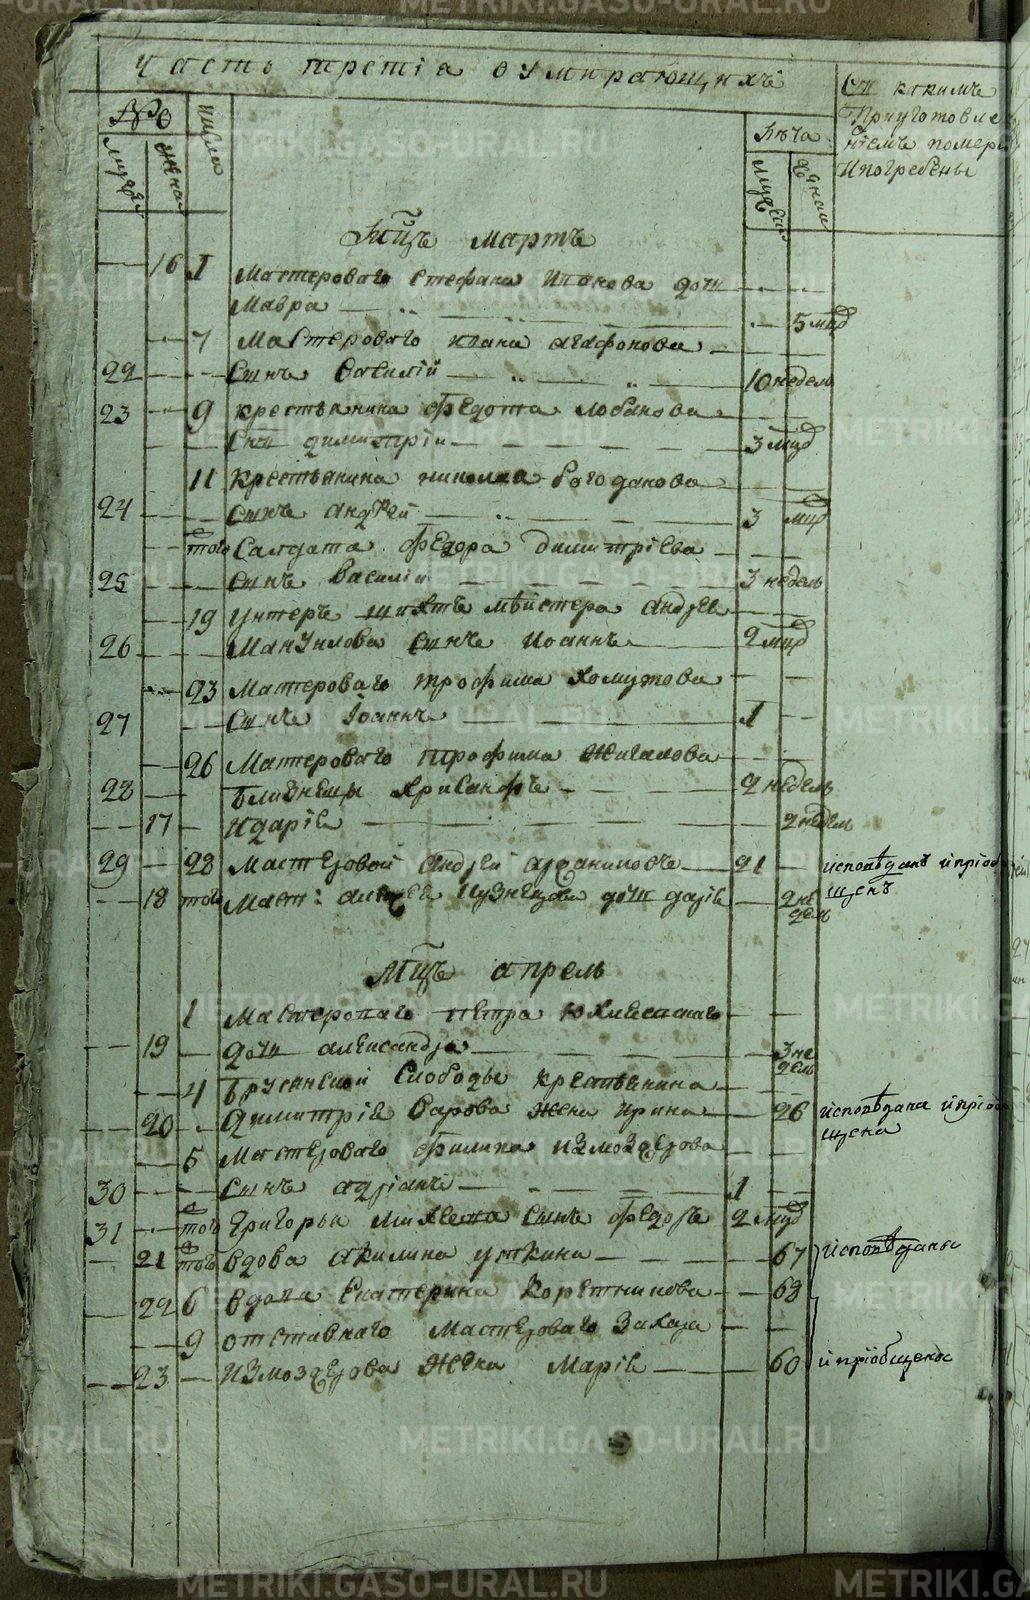 Часть третія оумирающихъ
Съ какимъ
Приуготовле
ніемъ померл
Ипогребены
№
числа
Лѣта
муже
женс
Мцъ Мартъ
16 1 Мастероваго Стефана Ипокова дочь
Мавра 5 мцд
7 Мастероваго Ивана Агафонова
22 Сынъ Василій 10 недель
23 9 крестьянина Федота Лобанова
Сынъ Димитріи 3 мцд
11 крестьянина николая Богоданова
24 Сынъ Андрей 3 мцд
того Салдата Федора Димитріева
25 Сынъ Василіи 3 недель
19 Унтеръ шихтъ мейстера Андрея
26 Мануилова Сынъ Иоаннъ 2 мцд
23 Мастероваго трофима Хомутова
27 Сынъ Іоаннъ 1
26 Мастероваго трофима Жигалова
28 близнецы Хрисанфъ 2 недель
17 и Даріѧ 2 недель
29 28 Мастеровой Андрей 21 исповѣданъ и пріоб
щенъ
18 того Маст: Алексея Кузнецова дочь Даріѧ 2 не
дель
Мцъ апрель
1 Мастероваго Петра
19 дочь александра 3 не
дель
4 брусенской Слободы крестьянина
20 Димитріѧ Варова жена Ирина 26 исповѣдана и пріоб
щена
5 Мастероваго Филипа Измозжерова
30 Сынъ адріанъ 1
31 того Григорьи Михеева Сынъ Федоръ 2 мцд
21 того вдова Акилина уткина 67 исповѣданы
22 6 вдова Екатерина Коретникова 68
9 отставнаго Мастероваго Захара
23 Измозжерова Жена Маріѧ 60 и пріобщены
METRIKI.GASO-URAL.RU